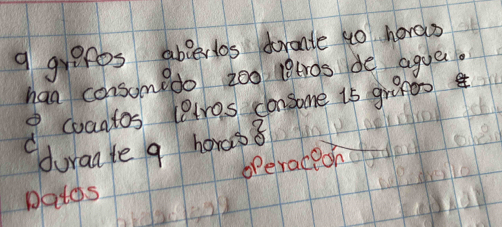 9 grifos abiertos durante 40 horas
han consumido 200 litros de agua.
¿ cuantos litros consome 15 grifos
durante 9 horas?
operación
Datos